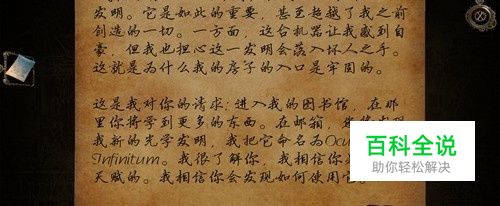 发明。它是如此的重要，甚至超越了我之前
创造的一切。一方面，这台机器让我感到自
豪，但我也担心这一发明会落入坏人之手。
这就是为什么我的房子的入口是牢固的。
这是我对你的请求：进入我的图书馆，在那
里你将学到更多的东西。在邮箱，
我新的光学发明，我把它命名为Ocu
Infinitum。我很了解你，我相信你
天赋的。我相信你会发现如何使用它。
百科全说
助你轻松解决